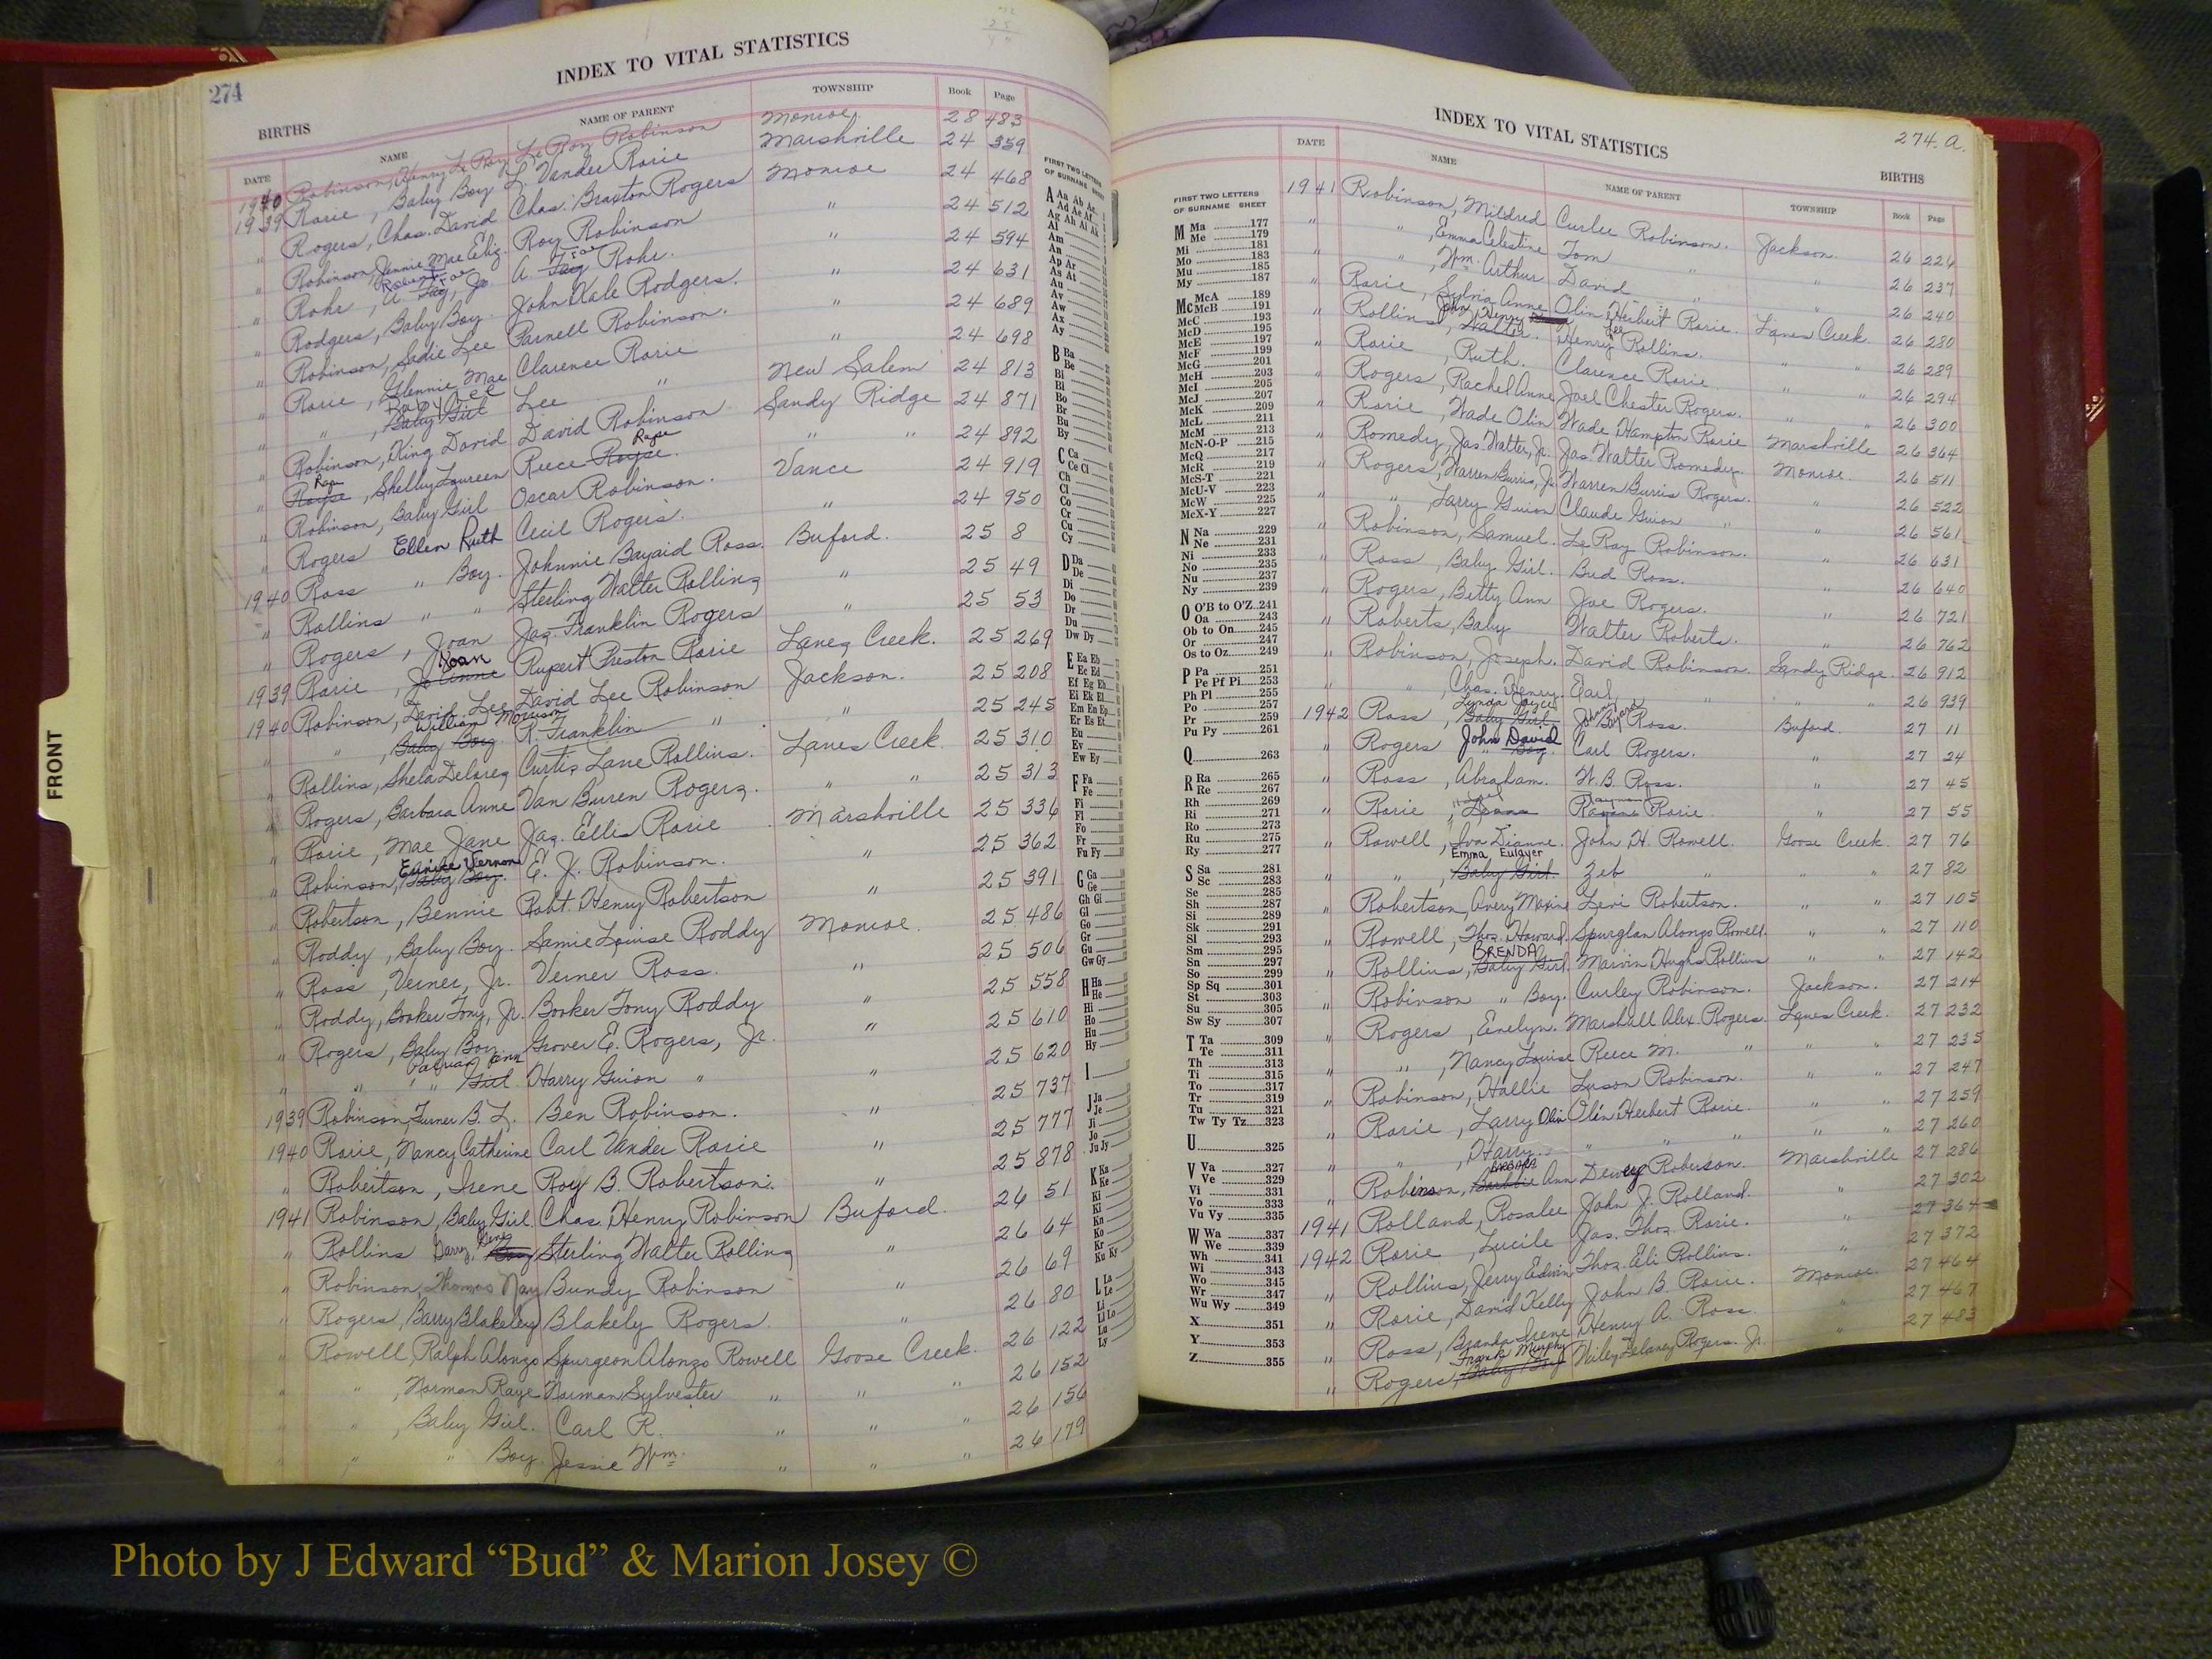 274
INDEX TO VITAL STATISTICS
BIRTHS
DATE NAME NAME OF PARENT TOWNSHIP Book Page
1940 Robinson, Henry Le Roy Le Roy Robinson Monroe. 28 483
1939 Rorie, Baby Boy L. Vander Rorie Marshville 24 359
" Rogers, Chas. David Chas. Braxton Rogers Monroe 24 468
" Robinson, Jennie Mae Eliz. Roy Robinson " 24 512
" Rohr, A. Jr. A. Rohr. " 24 594
" Rodgers, Baby Boy. John Hale Rodgers. " 24 631
" Robinson, Sadie Lee Parnell Robinson. " 24 689
" Rorie, Glennie Mae Clarence Rorie " 24 698
" " , Baby Girl Lee " New Salem 24 813
" Robinson, King David David Robinson Sandy Ridge 24 871
" Rape, Shelby Laureen Reece Rape " " 24 892
" Robinson, Baby Girl Oscar Robinson. Vance 24 919
" Rogers Ellen Ruth Cecil Rogers. " 24 950
1940 Ross " Boy. Johnnie Bayaid Ross. Buford. 25 8
" Rollins " " Sterling Walter Rollins " 25 49
" Rogers, Joan Jas. Franklin Rogers " 25 53
1939 Rorie, Joan Jo Anne Rupert Preston Rorie Lanes Creek. 25 269
1940 Robinson, David Lee David Lee Robinson Jackson. 25 208
" " , William Morrison Baby Boy R. Franklin " " 25 245
" Rollins, Shela Delores Curtis Lane Rollins. Lanes Creek 25 310
" Rogers, Barbara Anne Van Buren Rogers. " " 25 313
" Rorie, Mae Jane Jas. Ellis Rorie Marshville 25 336
" Robinson, Eunice Vernon Baby Boy. E. J. Robinson. " 25 362
" Robertson, Bennie Robt. Henry Robertson " 25 391
" Roddy, Baby Boy. Samie Louise Roddy Monroe. 25 486
" Ross, Verner, Jr. Verner Ross. " 25 506
" Roddy, Booker Tony, Jr. Booker Tony Roddy " 25 558
" Rogers, Baby Boy. Grover E. Rogers, Jr. " 25 610
" " , " Girl Harry Guion " " 25 620
1939 Robinson, Turner B. L. Ben Robinson. " 25 737
1940 Rorie, Nancy Catherine Carl Vander Rorie " 25 777
" Robertson, Irene Roy B. Robertson. " 25 878
1941 Robinson, Baby Girl. Chas. Henry Robinson Buford. 26 51
" Rollins Sterling Walter Rollins " 26 64
" Robinson, Thomas Ray Bundy Robinson " 26 69
" Rogers, Barry Blakeley Blakely Rogers. " 26 80
" Rowell, Ralph Alonzo Spurgeon Alonzo Rowell Goose Creek. 26 122
" " , Norman Raye Norman Sylvester " " " 26 152
" " , Baby Girl. Carl R. " " " 26 156
" " " Boy. Jessie Wm. " " " 26 179
FIRST TWO LETTERS
OF SURNAME
A Aa Ab Ac
Ad Ae Af
Ag Ah Ai Ak
Al
Am
An
Ap Ar
As At
Au
Av
Aw
Ax
Ay
B Ba
Be
Bi
Bl
Bo
Br
Bu
By
C Ca
Ce Ci
Ch
Cl
Co
Cr
Cu
Cy
D Da
De
Di
Do
Dr
Du
Dw Dy
E Ea Eb
Ec Ed
Ef Eg Eh
Ei Ek El
Em En Ep
Er Es Et
Eu
Ev
Ew Ey
F Fa
Fe
Fi
Fl
Fo
Fr
Fu Fy
G Ga
Ge
Gh Gi
Gl
Go
Gr
Gu
Gw Gy
H Ha
He
Hi
Ho
Hu
Hy
I
J Ja
Je
Ji
Jo
Ju Jy
K Ka
Ke
Ki
Kl
Kn
Ko
Kr
Ku Ky
L La
Le
Li
Ll Lo
Lu
Ly
INDEX TO VITAL STATISTICS
274.a.
BIRTHS
FIRST TWO LETTERS
OF SURNAME SHEET
M Ma 177
Me 179
Mi 181
Mo 183
Mu 185
My 187
Mc McA 189
McB 191
McC 193
McD 195
McE 197
McF 199
McG 201
McH 203
McI 205
McJ 207
McK 209
McL 211
McM 213
McN-O-P 215
McQ 217
McR 219
McS-T 221
McU-V 223
McW 225
McX-Y 227
N Na 229
Ne 231
Ni 233
No 235
Nu 237
Ny 239
O O'B to O'Z 241
Oa 243
Ob to On 245
Or 247
Os to Oz 249
P Pa 251
Pe Pf Pi 253
Ph Pl 255
Po 257
Pr 259
Pu Py 261
Q 263
R Ra 265
Re 267
Rh 269
Ri 271
Ro 273
Ru 275
Ry 277
S Sa 281
Sc 283
Se 285
Sh 287
Si 289
Sk 291
Sl 293
Sm 295
Sn 297
So 299
Sp Sq 301
St 303
Su 305
Sw Sy 307
T Ta 309
Te 311
Th 313
Ti 315
To 317
Tr 319
Tu 321
Tw Ty Tz 323
U 325
V Va 327
Ve 329
Vi 331
Vo 333
Vu Vy 335
W Wa 337
We 339
Wh 341
Wi 343
Wo 345
Wr 347
Wu Wy 349
X 351
Y 353
Z 355
DATE NAME NAME OF PARENT TOWNSHIP Book Page
1941 Robinson, Mildred Curlee Robinson. Jackson. 26 226
" " , Emma Celestine Tom " " 26 237
" " , Wm. Arthur David " " 26 240
" Rorie, Sylvia Anne Olin Herbert Rorie. Lanes Creek. 26 280
" Rollins, John Henry Walter. Henry Lee Rollins. " " 26 289
" Rorie, Ruth. Clarence Rorie. " " 26 294
" Rogers, Rachel Anne Joel Chester Rogers. " " 26 300
" Rorie, Wade Olin Wade Hampton Rorie Marshville 26 364
" Romedy, Jas. Walter, Jr. Jas. Walter Romedy. Monroe. 26 511
" Rogers, Warren Burris, Jr. Warren Burris Rogers. " 26 522
" " Larry Guion Claude Guion " " 26 561
" Robinson, Samuel. Le Roy Robinson. " 26 631
" Ross, Baby Girl. Bud Ross. " 26 640
" Rogers, Betty Ann Joe Rogers. " 26 721
" Roberts, Baby Walter Roberts. " 26 762
" Robinson, Joseph. David Robinson. Sandy Ridge. 26 912
" " , Chas. Henry. Earl " " " 26 939
1942 Ross, Lynda Joyce Baby Girl Ross. Buford. 27 11
" Rogers John David " Boy. Carl Rogers. " 27 24
" Ross, Abraham. W. B. Ross. " 27 45
" Rorie, Rorie " 27 55
" Rowell, Iva Dianne. John H. Rowell. Goose Creek. 27 76
" " , Emma Eulayer Baby Girl. Zeb " " " 27 82
" Robertson, Avery Maxine Levi Robertson. " " 27 105
" Rowell, Thos. Howard. Spurglan Alonzo Rowell. " " 27 110
" Rollins, BRENDA Baby Girl. Marvin Hughs Rollins " " 27 142
" Robinson " Boy. Curley Robinson. Jackson. 27 214
" Rogers, Evelyn. Marshall Alex. Rogers. Lanes Creek. 27 232
" " , Nancy Louise Reece M. " " " 27 235
" Robinson, Hallie Luson Robinson. " " 27 247
" Rorie, Larry Olin Olin Herbert Rorie. " " 27 259
" " , Harry. " " " " " 27 260
" Robinson, Ann Dewey Roberson. Marshville 27 286
1941 Rolland, Rosalee John J. Rolland. " 27 302
1942 Rorie, Lucile Jas. Thos. Rorie. " 27 364
" Rollins, Jerry Edwin Thos. Eli Rollins. 27 372
" Rorie, David Kelly John B. Rorie. Monroe. 27 464
" Ross, Brenda Irene Henry A. Ross. " 27 467
" Rogers, Frank Murphy Baby Boy Wiley Delaney Rogers. Jr. " 27 483
FRONT
Photo by J Edward “Bud” & Marion Josey ©